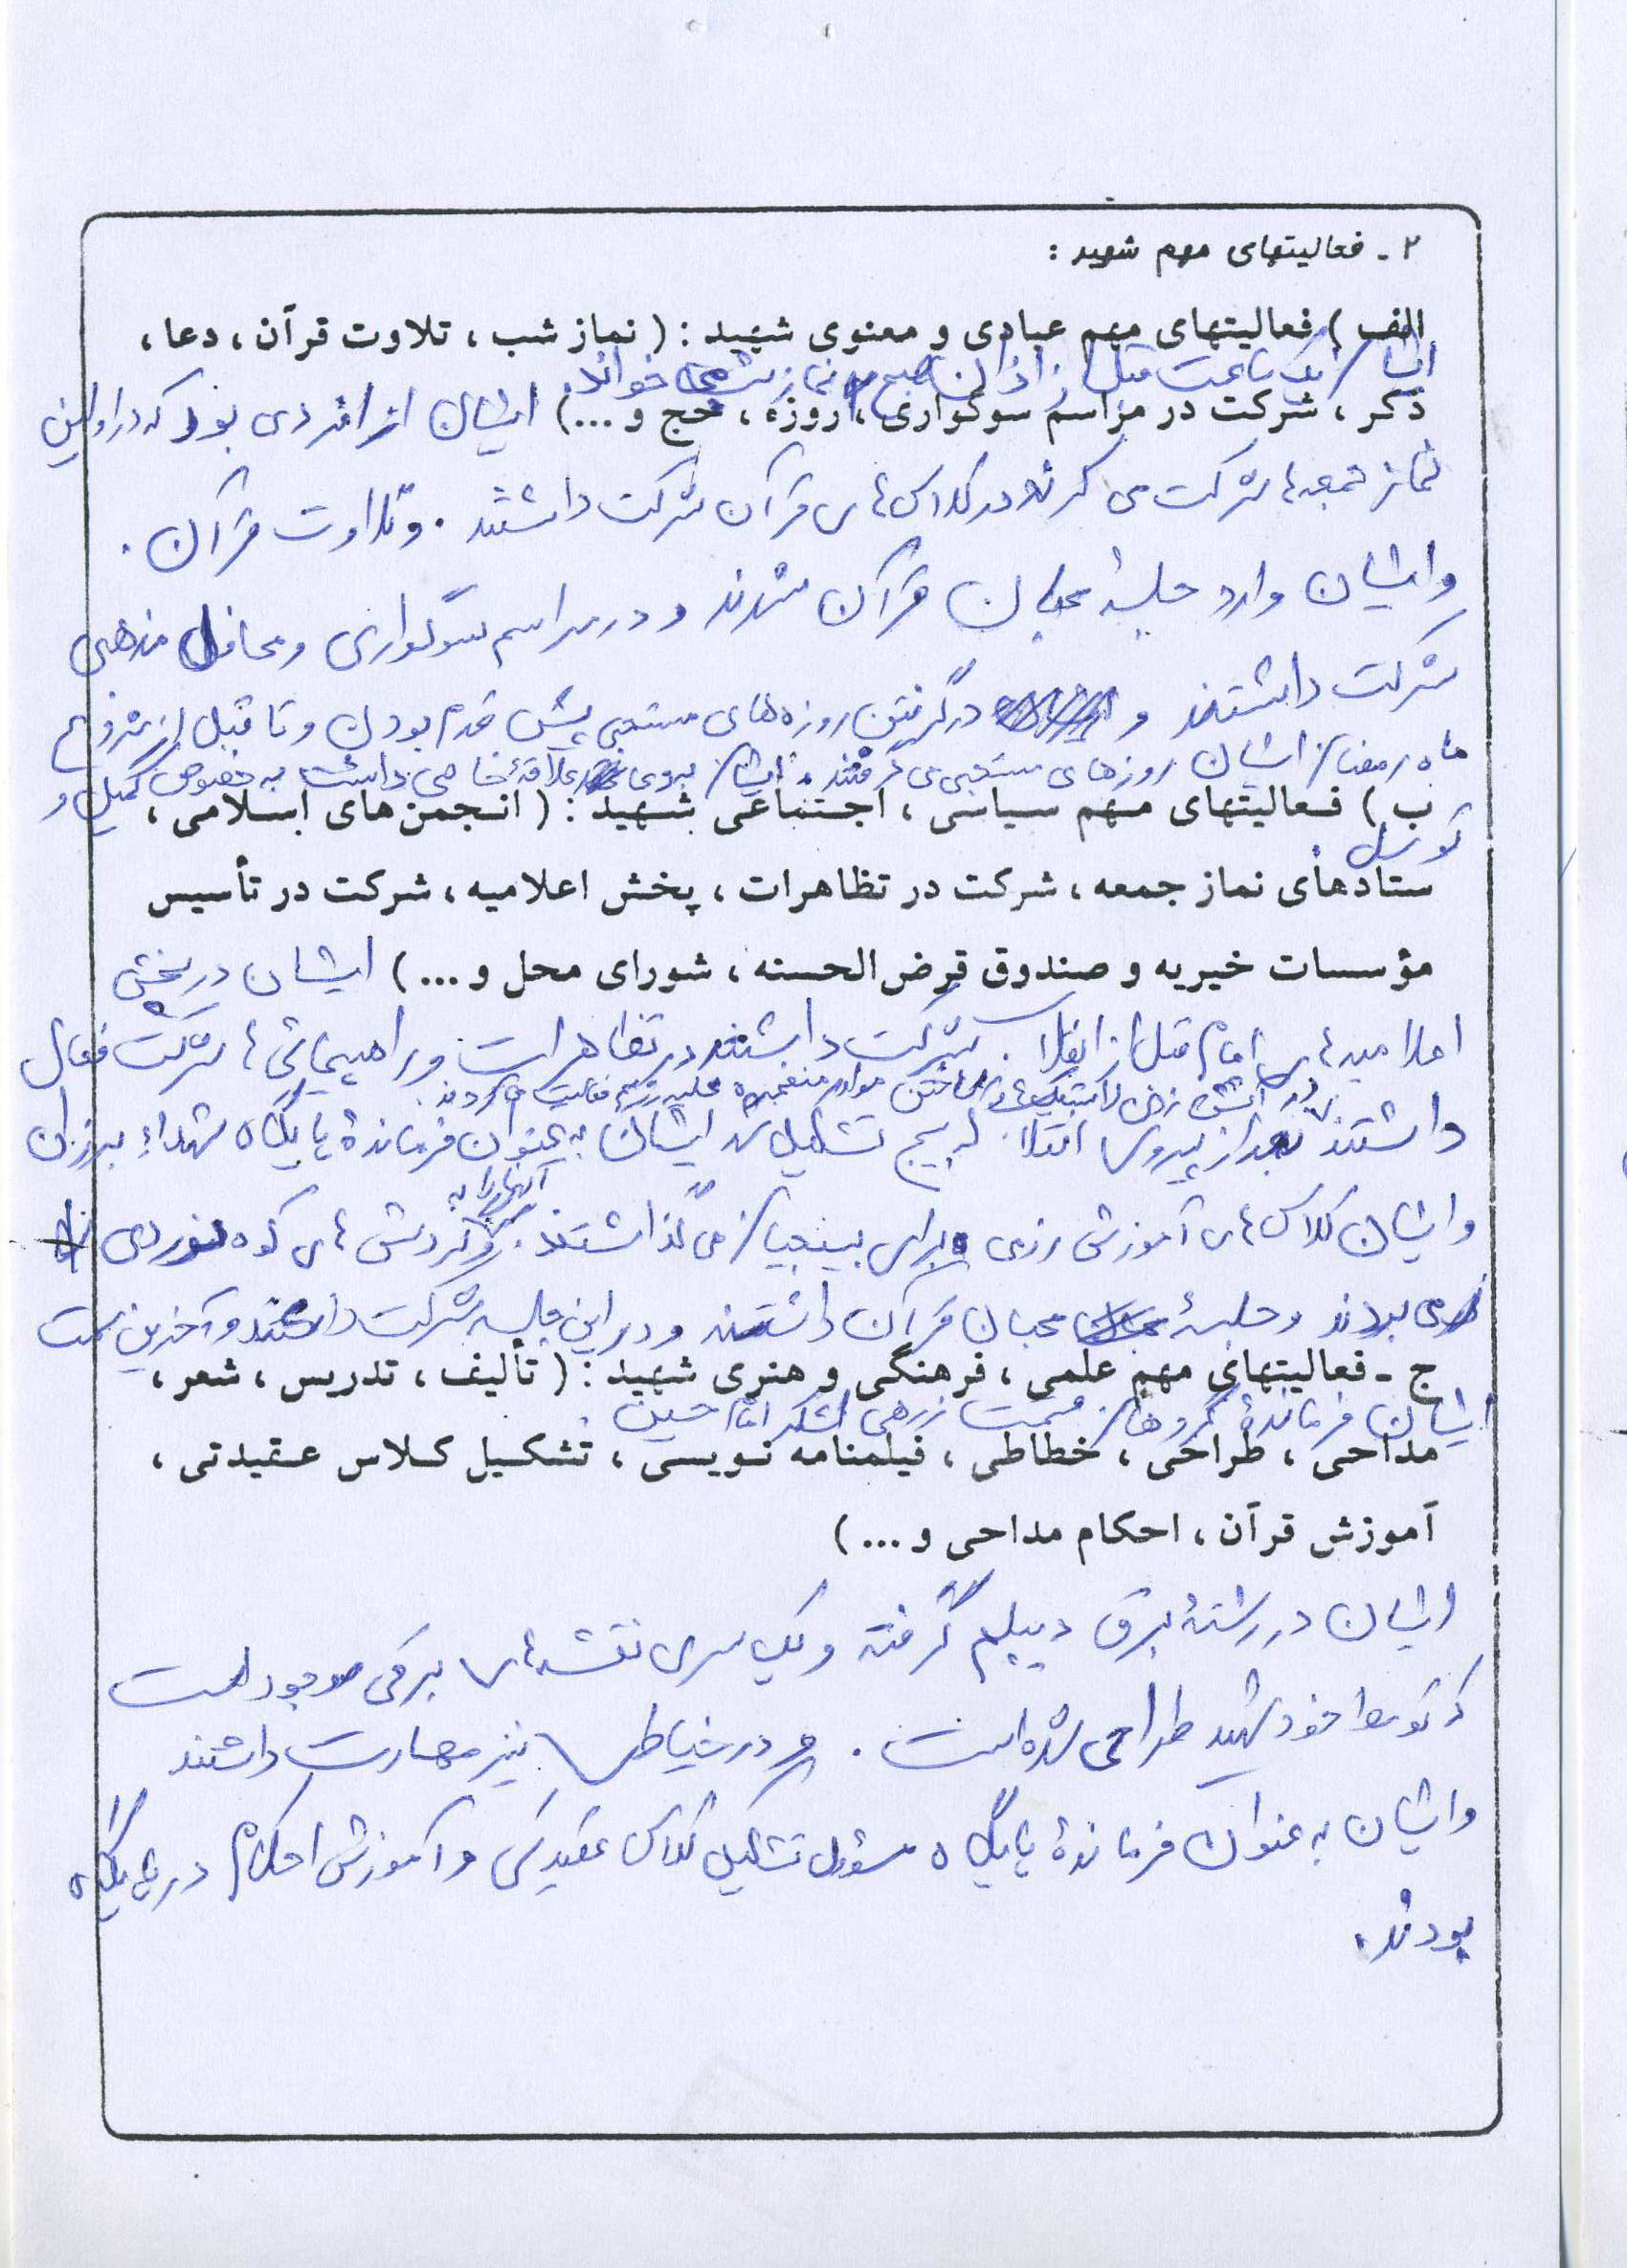 ۲ ـ فعالیتهای مهم شهید :
الف ) فعالیتهای مهم عبادی و معنوی شهید : ( نماز شب ، تلاوت قرآن ، دعا ،
ایشان یک ساعت قبل از اذان صبح نماز شب می خواند
ذکر ، شرکت در مراسم سوگواری ، روزه ، حج و ... ) ایشان از افردی بود که در اولین
نماز جمعه ها شرکت می کردند در کلاس های قرآن شرکت داشتند . و تلاوت قرآن .
و ایشان وارد جلسۀ محبان قرآن شدند و در مراسم سوگواری و محافل مذهبی
شرکت داشتند و در گرفتن روزه های مستحبی پیش قدم بودن و تا قبل از شروع
ماه رمضان ایشان روزهای مستحبی می گرفتند . ایشان علاقۀ خاصی داشت به خصوص کمیل و
توسل
ب ) فعالیتهای مهم سیاسی ، اجتماعی شهید : ( انجمن های اسلامی ،
ستادهای نماز جمعه ، شرکت در تظاهرات ، پخش اعلامیه ، شرکت در تأسیس
مؤسسات خیریه و صندوق قرض الحسنه ، شورای محل و ... ) ایشان در پخش
اعلامیه های امام قبل از انقلاب شرکت داشتند در تظاهرات و راهپیمائی ها شرکت فعال
در آتش زدن لاستیک ها و ساختن مواد منفجره علیه رژیم فعالیت می کردند
داشتند بعد از پیروی انقلاب که بسیج تشکیل شد ایشان به عنوان فرماندۀ پایگاه شهداء برزان
و ایشان کلاس های آموزش رزمی برای بسیجیان می گذاشتند . و آنها را به گردش های کوه نوردی
می بردند و جلسۀ محبان قرآن داشتند و در این جلسه شرکت داشتند و آخرین سمت
ایشان فرماندۀ گروهان قسمت زرهی لشکر امام حسین .
ج ـ فعالیتهای مهم علمی ، فرهنگی و هنری شهید : ( تألیف ، تدریس ، شعر ،
مداحی ، طراحی ، خطاطی ، فیلمنامه نویسی ، تشکیل کلاس عقیدتی ،
آموزش قرآن ، احکام مداحی و ... )
ایشان در رشتۀ برق دیپلم گرفته و یک سری نقشه های برقی موجود است
که توسط خود شهید طراحی شده است . و در خیاطی نیز مهارت داشتند
و ایشان به عنوان فرماندۀ پایگاه مسؤل تشکیل کلاس عقیدتی و آموزش احکام در پایگاه
بودند .